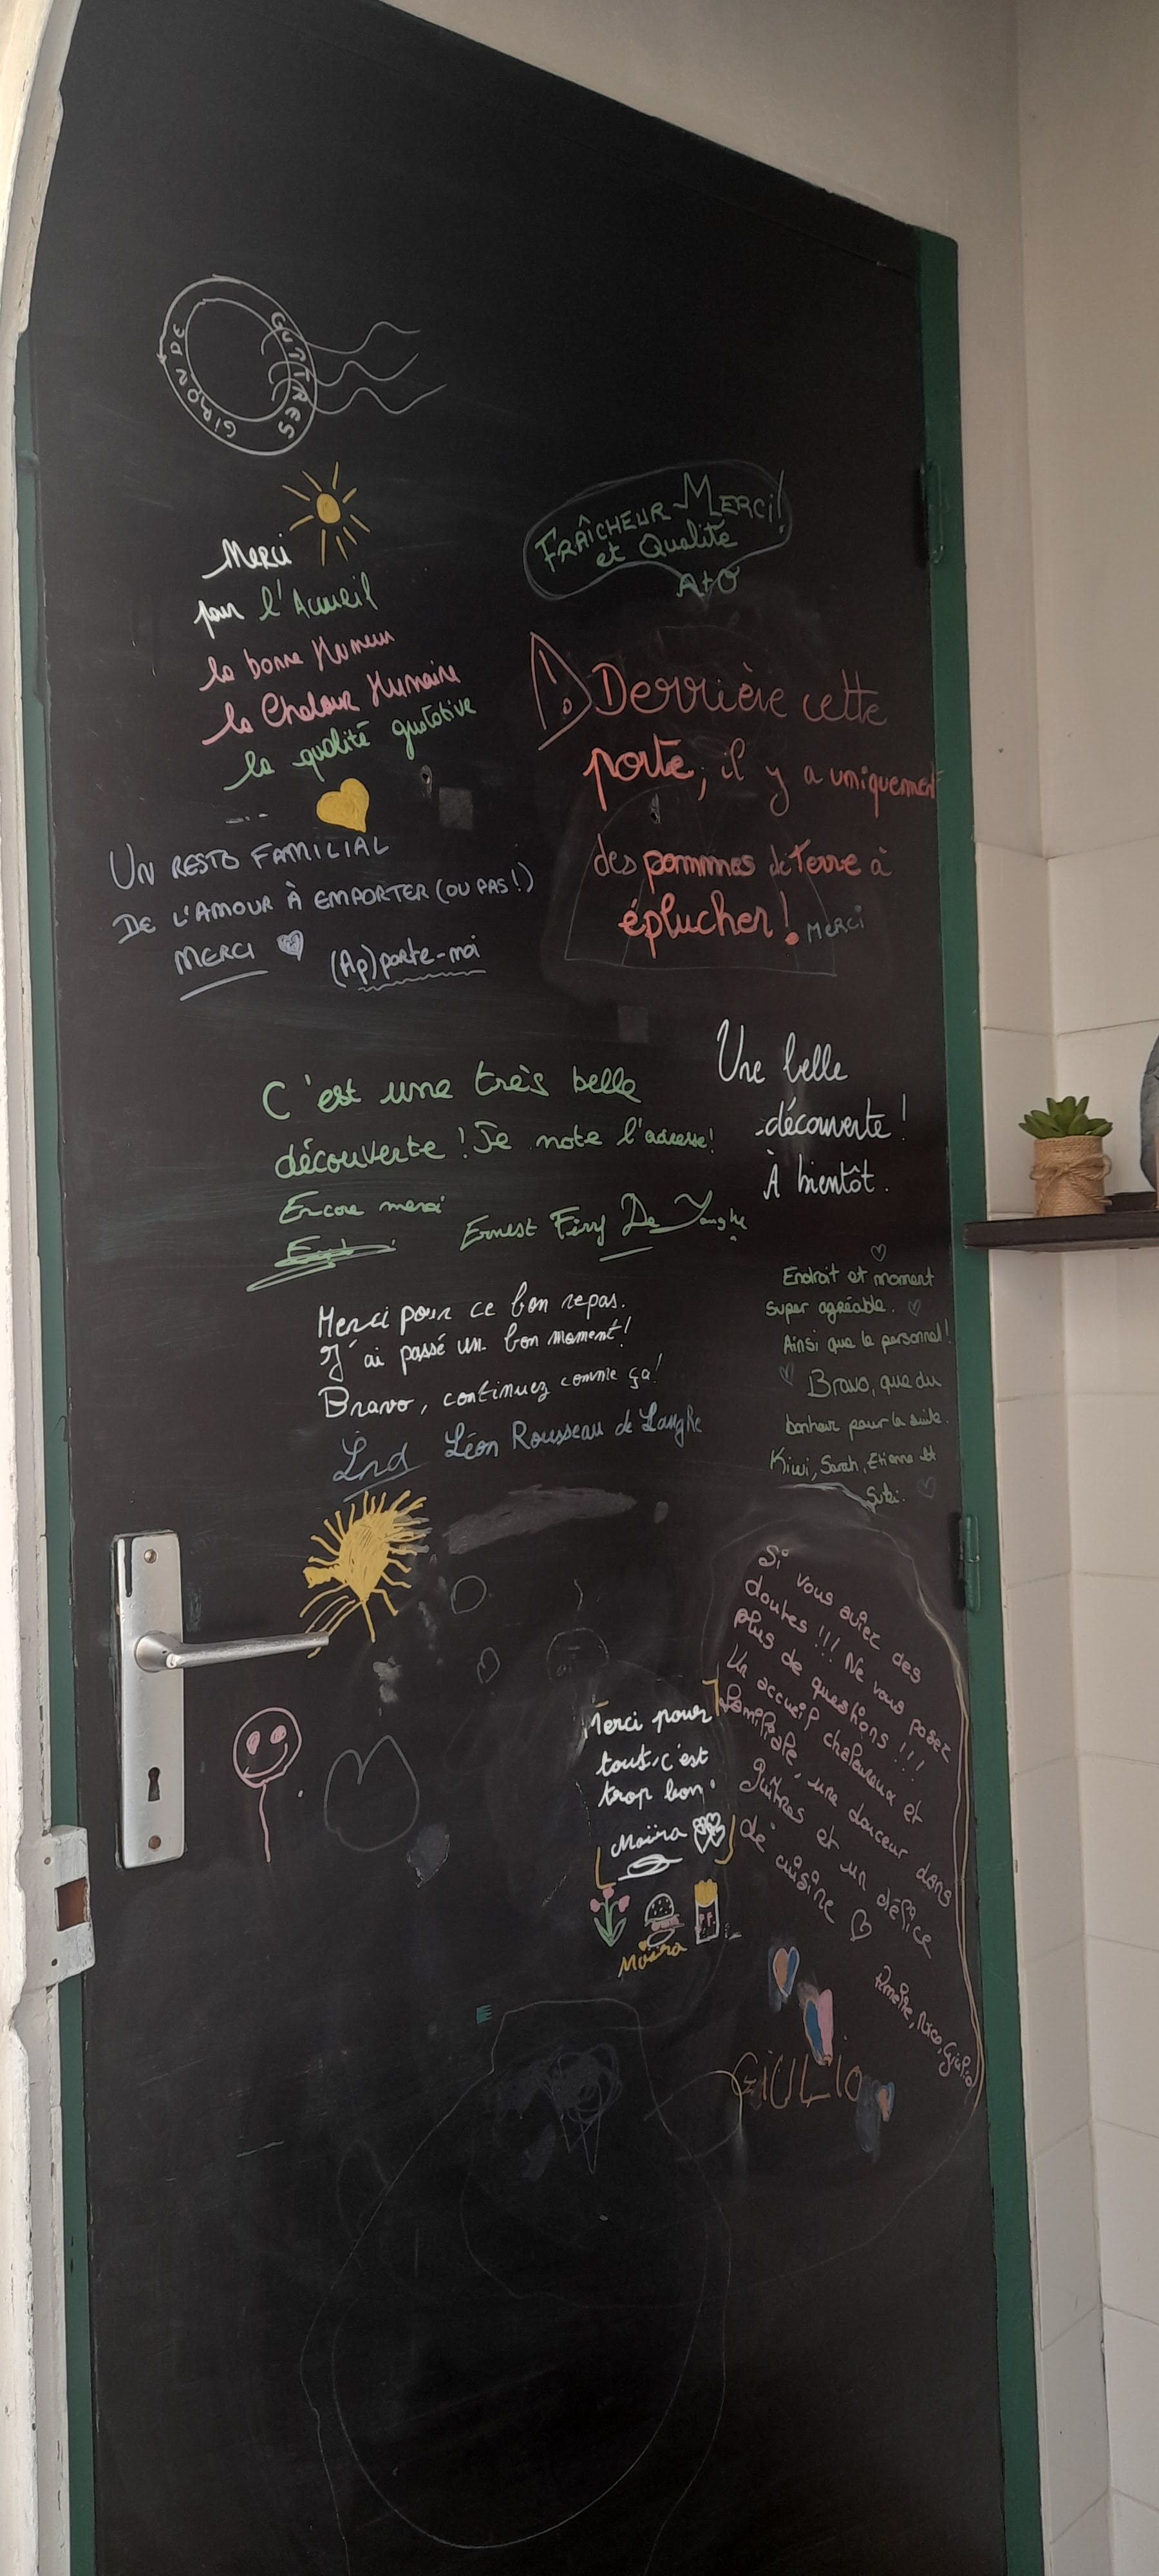 GUÎTRES
GIRONDE
Merci
pour l'Accueil
la bonne Humeur
la Chaleur Humaine
la qualité gustative
...
UN RESTO FAMILIAL
DE L'AMOUR À EMPORTER (OU PAS !)
MERCI
(Ap)porte-moi
FRAÎCHEUR MERCI!
et Qualité
A+O
! Derrière cette
porte, il y a uniquement
des pommes de Terre à
éplucher! MERCI
C'est une très belle
découverte ! Je note l'adresse!
Encore merci
Ernest Firy De
Une belle
découverte !
À bientôt.
Merci pour ce bon repas.
J'ai passé un bon moment!
Bravo, continuez comme ça!
Lnd Léon Rousseau de Langhe
Endroit et moment
super agréable.
Ainsi que le personnel!
Bravo, que du
bonheur pour la suite.
Kiwi, Sarah, Etienne et
Suki.
Si vous aviez des
doutes !!! Ne vous posez
plus de questions !!!
Un accueil chaleureux et
familiale, une douceur dans
Guîtres et un délice
de cuisine
Nico, Giulio
Merci pour
tout, c'est
trop bon!
Moïra
Moïra
GIULIO